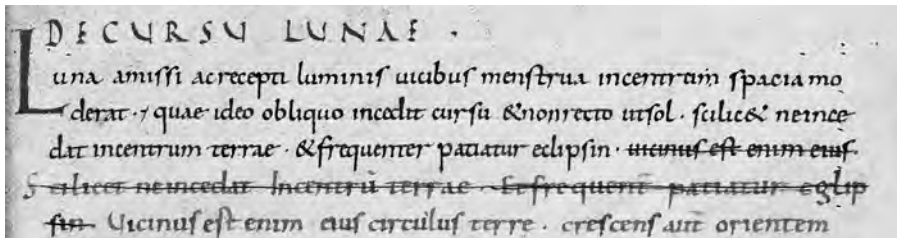 DE CURSU LUNAE .
Luna amissi ac recepti luminis uicibus menstrua incentrum spacia mo
derat · & quae ideo obliquo incedit cursu & non recto ut sol · scilic& ne ince
dat incentrum terrae · & frequenter patiatur eclipsin · uicinus est enim eius
Scilicet ne incedat Incentrū terrae · Et frequent̄ patiatur eglip
sin Uicinus est enim eius circulus terre · crescens aut̄ orientem